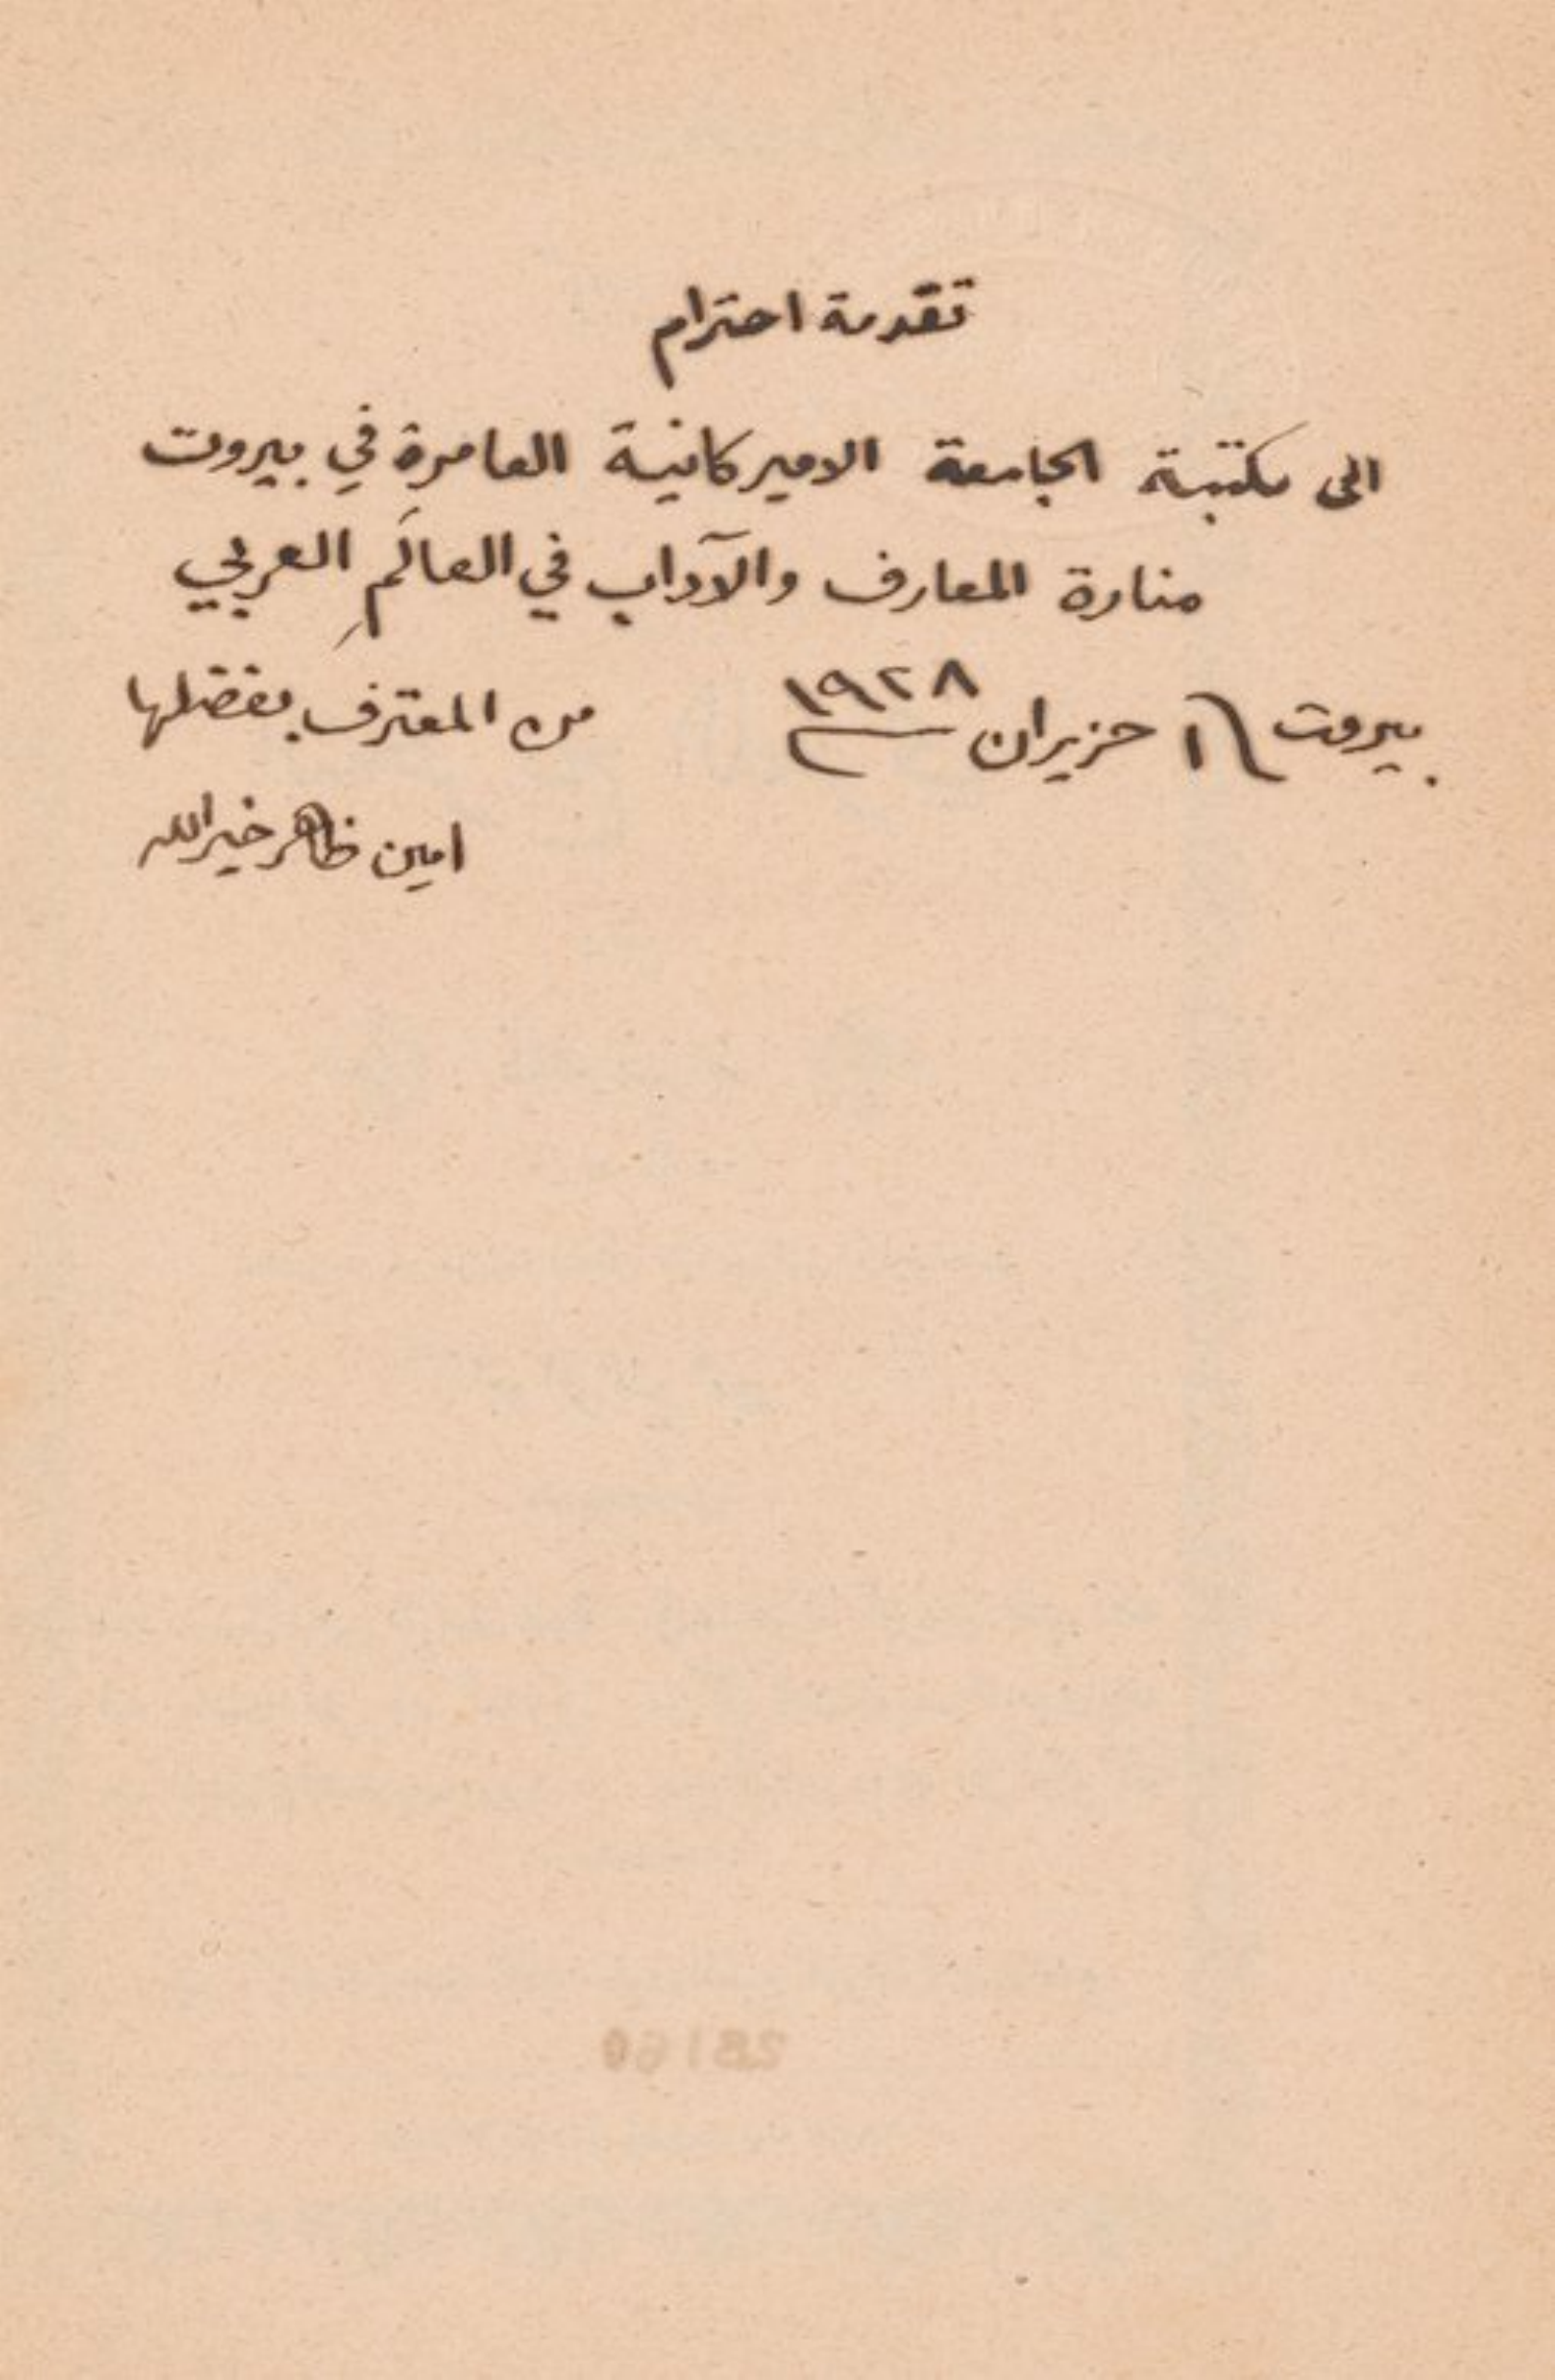 تقدمة احترام
الى مكتبة الجامعة الاميركانية العامرةِ في بيروت
منارة المعارف والآداب في العالَمِ العربي
بيروت ١ حزيران ١٩٢٨ من المعترف بفضلها
امين ظاهر خيرالله